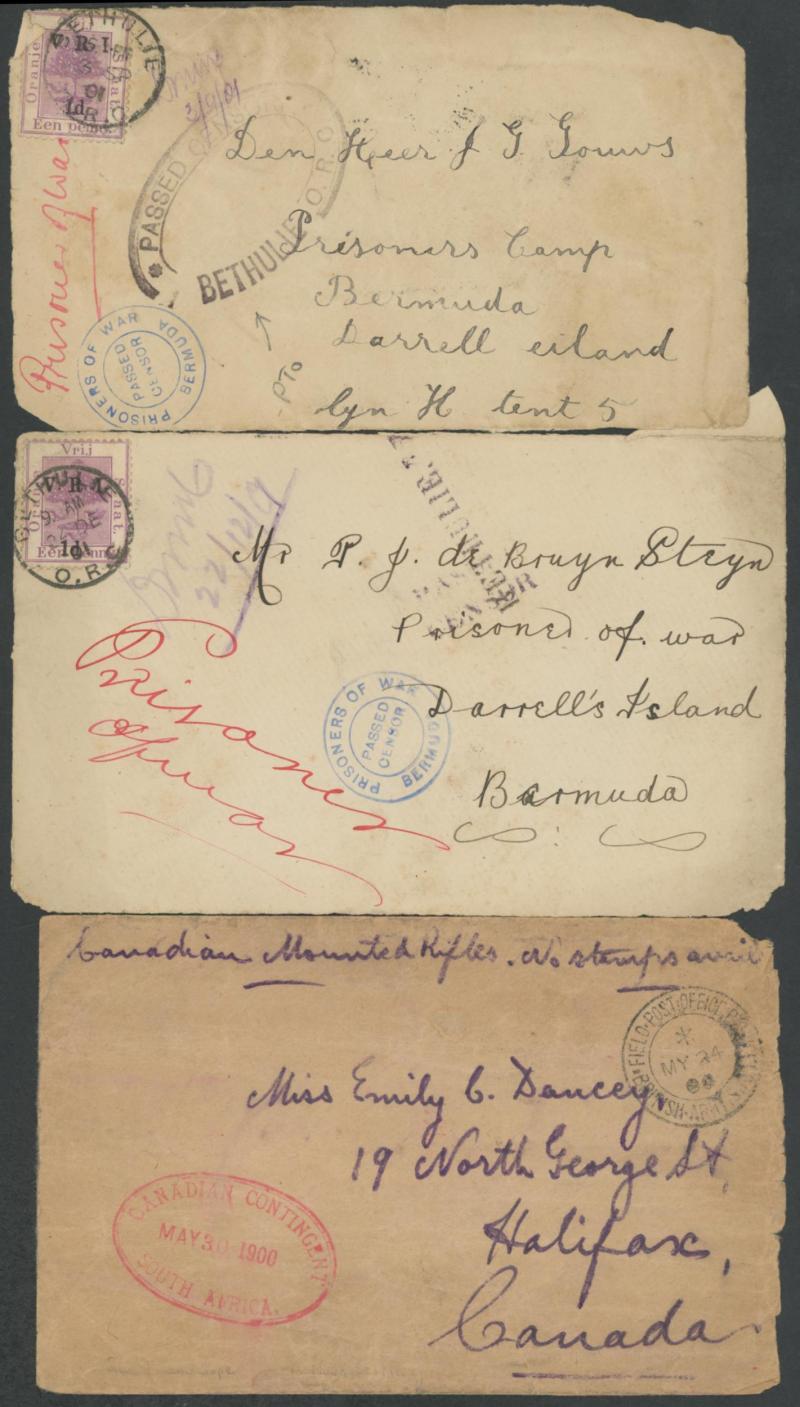 Oranje
V.R.I.
1d
Een penn
BETHULIE
01
Prisoner of War
2/9/01
PASSED CENSOR
BETHULIE O.R.C.
PRISONERS OF WAR BERMUDA
PASSED
CENSOR
PTO
Den Heer J G Gouws
Prisoners Camp
Bermuda
Darrell eiland
lyn H tent 5
Vrij
V.R.I.
1d
BETHULIE
9 AM
DE
01
O.R.C.
22/12/01
BETHULIE
Mr P. J. de Bruyn Steyn
Prisoner of. war
Darrell's Island
Bermuda
Prisoner
of war
PRISONERS OF WAR BERMUDA
PASSED
CENSOR
Canadian Mounted Rifles. No stamps avail
FIELD-POST OFFICE
BRITISH-ARMY
MY 24
Miss Emily C. Dancey,
19 North George St,
Halifax,
Canada
CANADIAN CONTINGENT
MAY 30 1900
SOUTH AFRICA.